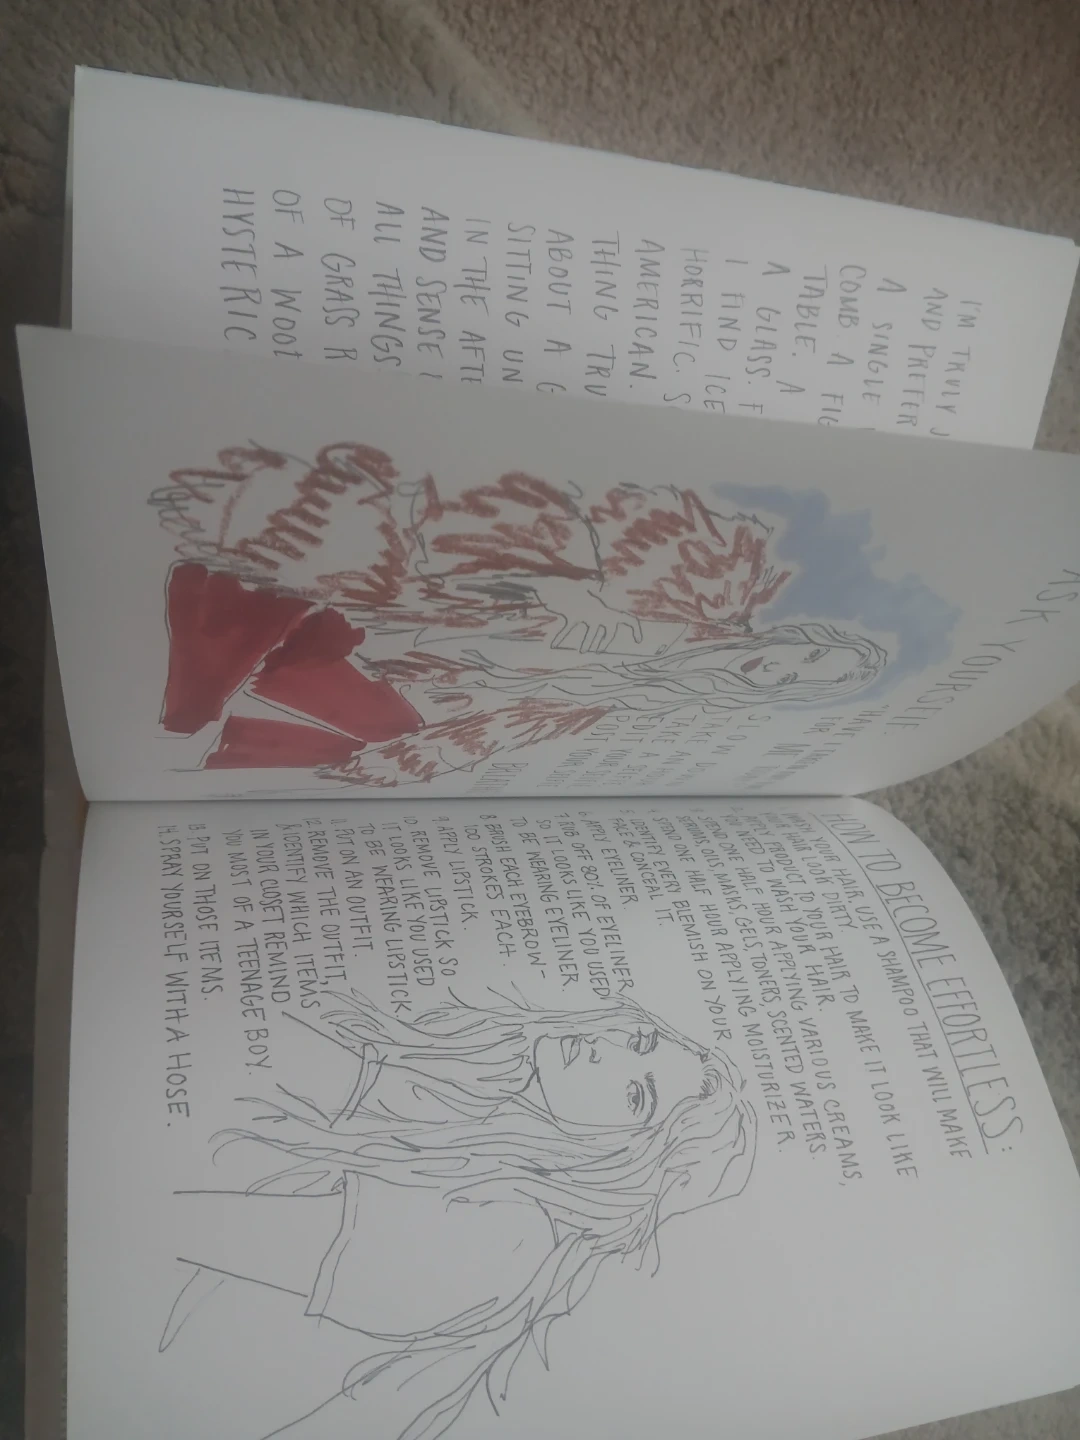 I'M TRULY
AND PREFER
A SINGLE
COMB. A FIG
TABLE. A
A GLASS. F
I FIND ICE
HORRIFIC. S
AMERICAN.
THING TRU
ABOUT A G
SITTING UN
IN THE AFTE
AND SENSE
ALL THINGS
OF GRASS R
OF A WOO
HYSTERIC
ASK YOURSELF:
"HAVE I
FOR
SLOW DOWN
TAKE AN
TAKE A STEP
EDIT YOUR
DUST YOUR
HOW TO BECOME EFFORTLESS:
1. WASH YOUR HAIR. USE A SHAMPOO THAT WILL MAKE
YOUR HAIR LOOK DIRTY.
2. APPLY PRODUCT TO YOUR HAIR TO MAKE IT LOOK LIKE
YOU NEED TO WASH YOUR HAIR.
3. SPEND ONE HALF HOUR APPLYING VARIOUS CREAMS,
SERUMS, OILS, MASKS, GELS, TONERS, SCENTED WATERS.
4. SPEND ONE HALF HOUR APPLYING MOISTURIZER.
5. IDENTIFY EVERY BLEMISH ON YOUR
FACE & CONCEAL IT.
6. APPLY EYELINER.
7. RUB OFF 80% OF EYELINER
SO IT LOOKS LIKE YOU USED
TO BE WEARING EYELINER.
8. BRUSH EACH EYEBROW-
100 STROKES EACH.
9. APPLY LIPSTICK.
10. REMOVE LIPSTICK SO
IT LOOKS LIKE YOU USED
TO BE WEARING LIPSTICK.
11. PUT ON AN OUTFIT.
12. REMOVE THE OUTFIT,
& IDENTIFY WHICH ITEMS
IN YOUR CLOSET REMIND
YOU MOST OF A TEENAGE BOY.
13. PUT ON THOSE ITEMS.
14. SPRAY YOURSELF WITH A HOSE.